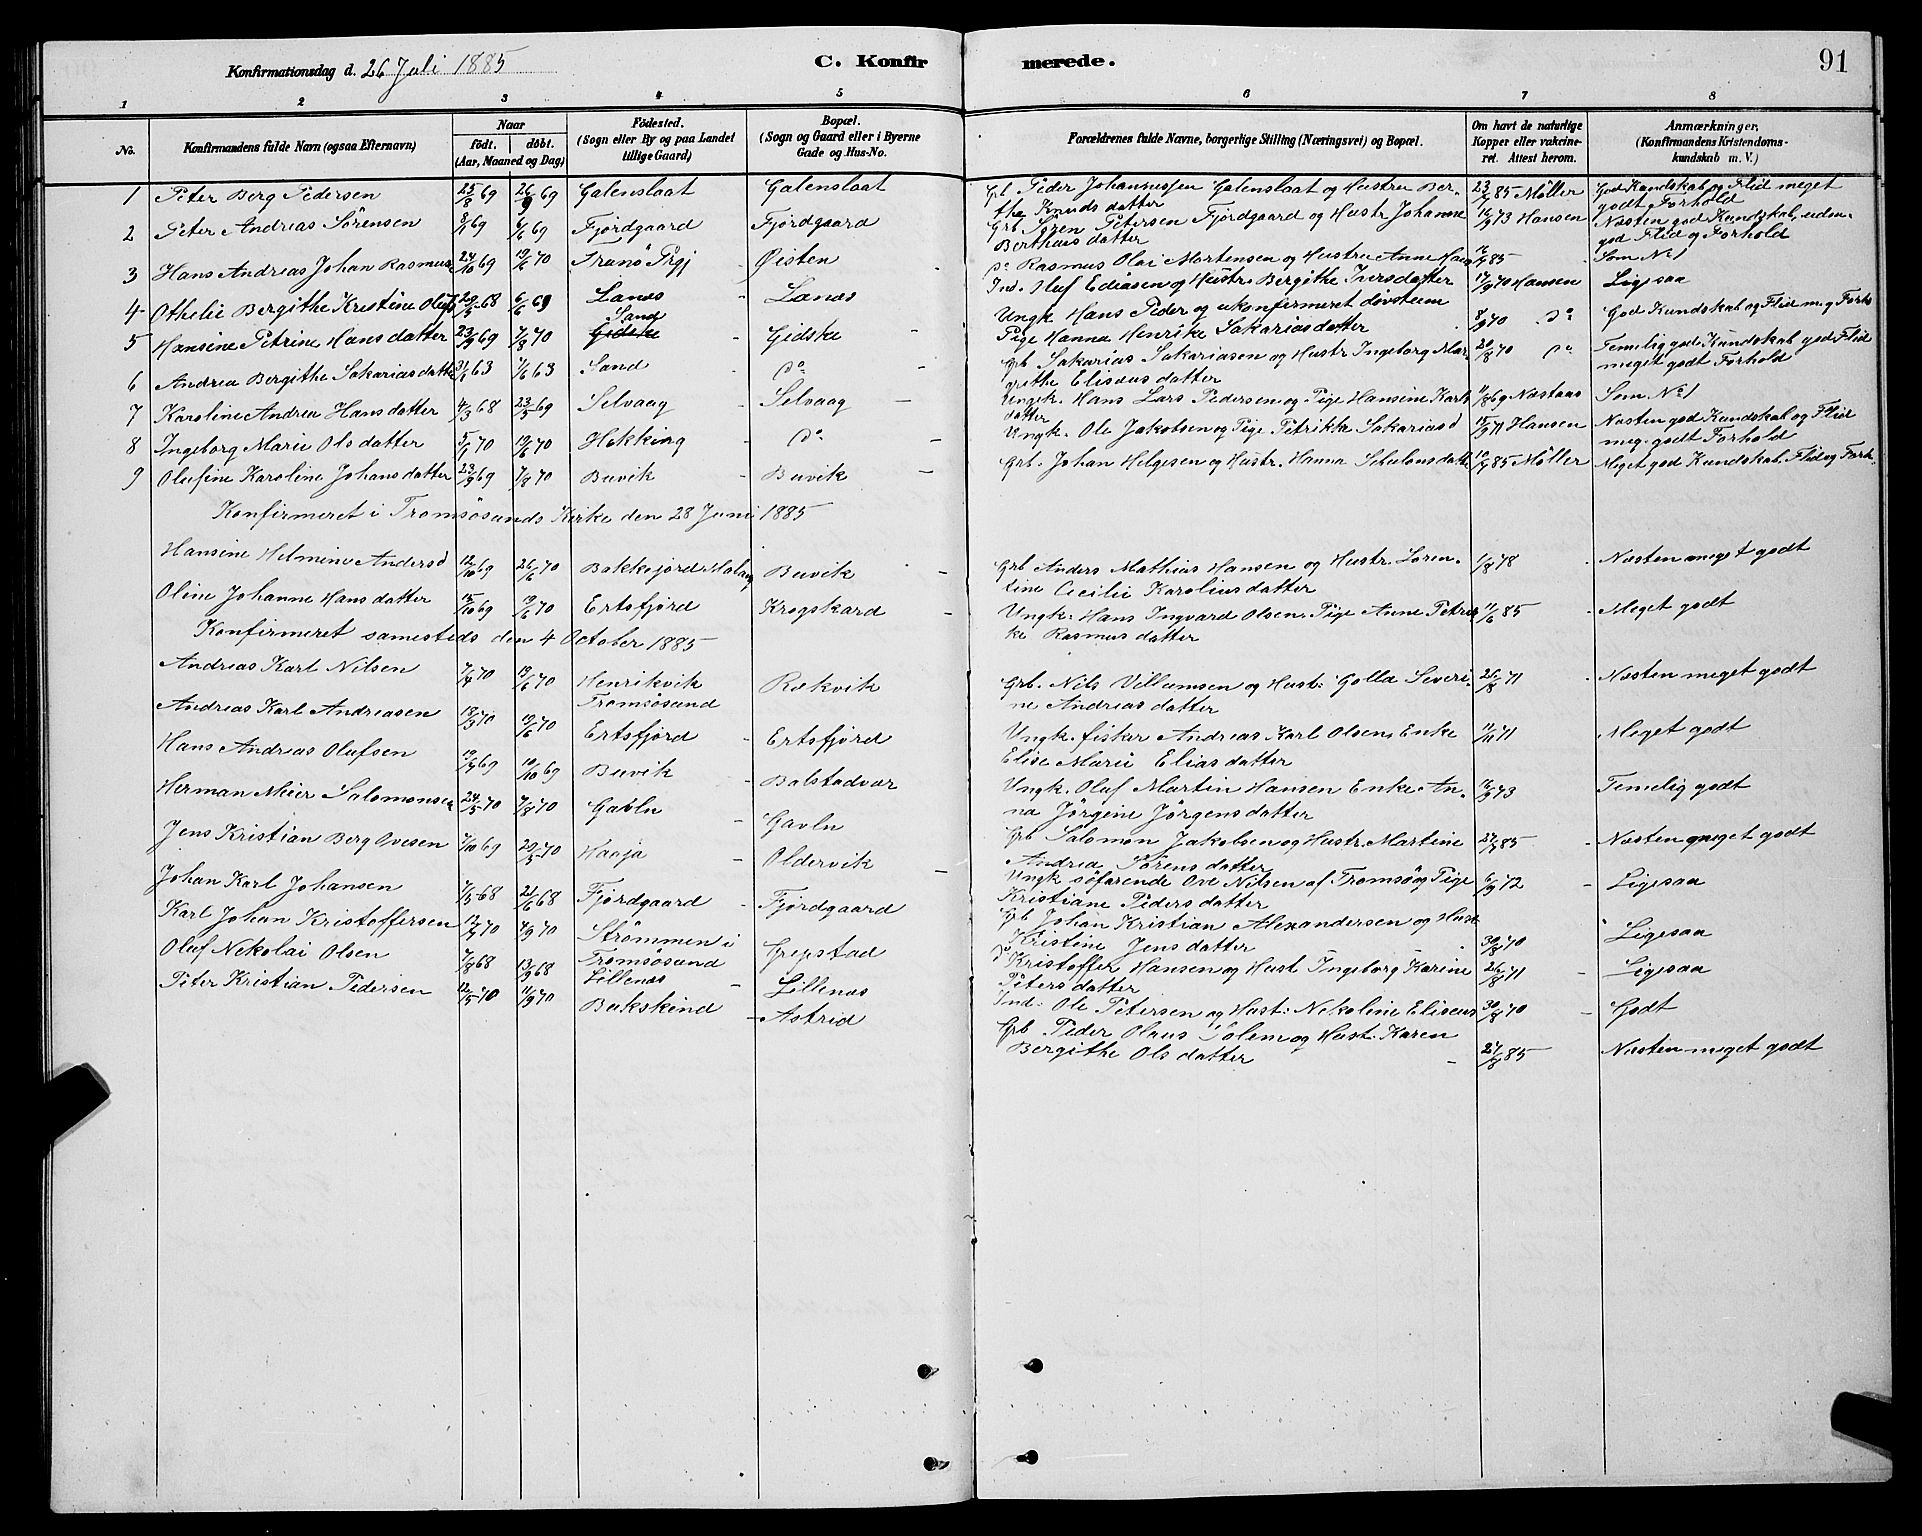 Konfirmationsdag d. 26 Juli 1885 C. Konfirmerede. 91
1 2 3 4 5 6 7 8
No. Konfirmandens fulde Navn (ogsaa Efternavn) Naar født. døbt. (Aar, Maaned og Dag) Fødested. (Sogn eller By og paa Landet tillige Gaard) Bopæl. (Sogn og Gaard eller i Byerne Gade og Hus-No. Forældrenes fulde Navne, borgerlige Stilling (Næringsvei) og Bopæl. Om havt de naturlige Kopper eller vakcineret. Attest herom. Anmærkninger. (Konfirmandens Kristendomskundskab m. V.)
1 Peter Berg Pedersen 25/8 69 26/9 69 Galenslaat Galenslaat Peder Johannessen Galenslaat og Hustru Berthe Knudsdatter 85 Møller God Kundskab og Flid meget godt Forhold
2 Peter Andreas Sörensen 69 69 Fjordgaard Fjordgaard Grb Sören Petersen Fjordgaard og Hustr Johanne Bertheusdatter 73 Hansen Næsten god Kundskab, god Flid og Forhold
3 Hans Andreas Johan Rasmus 24/10 69 19/6 70 Tranö Prgj Øisten Do Rasmus Olai Mortensen og Hustru Anne 85 Som No 1
4 Othelie Bergithe Kristine 68 6/6 69 Lanæs Lanæs Ind. Oluf Ediasen og Hustr. Bergithe Iversdatter 70 Hansen Ligesaa
5 Hansine Petrine Hansdatter 23/9 69 7/8 70 Sand Gidske Gidske Ungk Hans Peder og ukonfirmeret døvstum Pige Hanna Henrike Sakariasdatter 8/9 70 Do God Kundskab og Flid meg Forh
6 Andrea Bergithe Sakariasdatte 63 63 Sand Do Grb Sakarias Sakariasen og Hustr Ingeborg Margrethe Elisæusdatter 20/8 70 Do Temelig god Kundskab god Flid meget godt Forhold
7 Karoline Andrea Hansdatter 4/3 68 23/5 69 Selvaag Selvaag Ungk. Hans Lars Pedersen og Pige Hansine Karlsdatter 69 Næstaas Som No 1
8 Ingeborg Marie Olsdatter 5/1 70 19/6 70 Hekking Do Ungk. Ole Jakobsen og Pige Petrikke Sakariasd 71 Hansen Næsten god Kundskab og Flid meg. godt Forhold
9 Olufine Karoline Johansdatter 23/9 69 7/8 70 Buvik Buvik Grb. Johan Helgesen og Hustr. Hanna Sebulonsdatte 85 Møller Meget god Kundskab Flid og Forh.
Konfirmeret i Tromsösunds Kirke den 28 Juni 1885
Hansine Helmine Andersd 12/10 69 26/6 70 Bakkejord Malang Buvik Grb Anders Mathias Hansen og Hustr. Lorentine Cecilie Karoliusdatter 1/8 78 Næsten meget godt
Oline Johanne Hansdatter 15/10 69 19/6 70 Ertsfjord Krogskard Ungk. Hans Ingvard Olsen. Pige Anne Petrikke Rasmusdatter 11/6 85 Meget godt
Konfirmeret samesteds den 4 October 1885
Andreas Karl Nilsen 7/4 70 19/6 70 Henrikvik Tromsösund Rækvik Grb. Nils Villumsen og Hust: Golla Severine Andreasdatter 26/8 71 Næsten meget godt
Andreas Karl Andreasen 18/3 70 19/6 70 Ertsfjord Ertsfjord Ungk. fisker Andreas Karl Olsen Enke Elise Marie Eliasdatter 71 Meget godt
Hans Andreas Olufsen 69 10/10 69 Buvik Balstadvær Ungk. Oluf Martin Hansen Enke Anna Jörgine Jörgensdatter 73 Temelig godt
Herman Meier Salomonsen 24/5 70 7/8 70 Gavln Gavln Grb Salomon Jakobsen og Hustr. Martine Andrea Sörensdatter 85 Næsten meget godt
Jens Kristian Berg Ovesen 7/10 69 29/5 70 Haaja Oldervik Ungk söfarende Ove Nilsen af Tromsø og Pige Kristiane Pedersdatter 6/9 72 Ligesaa
Johan Karl Johansen 7/5 68 21/6 68 Fjordgaard Fjordgaard Grb Johan Kristian Alexandersen og Hust Kristine Jensdatter 30/8 70 Ligesaa
Karl Johan Kristoffersen 70 70 Strömmen i Tromsösund Grepstad Do Kristoffer Hansen og Hust Ingeborg Karine Petersdatter 26/8 71 Ligesaa
Oluf Nekolai Olsen 7/8 68 13/9 68 Lillenæs Lillenæs Ind: Ole Petersen og Hust: Nekoline Eliseus 30/8 70 Godt
Peter Kristian Pedersen 12/5 70 11/9 70 Bukskind Astrid Grb Peder Olaus Solem og Hust: Karen Bergithe Olsdatter 85 Næsten meget godt